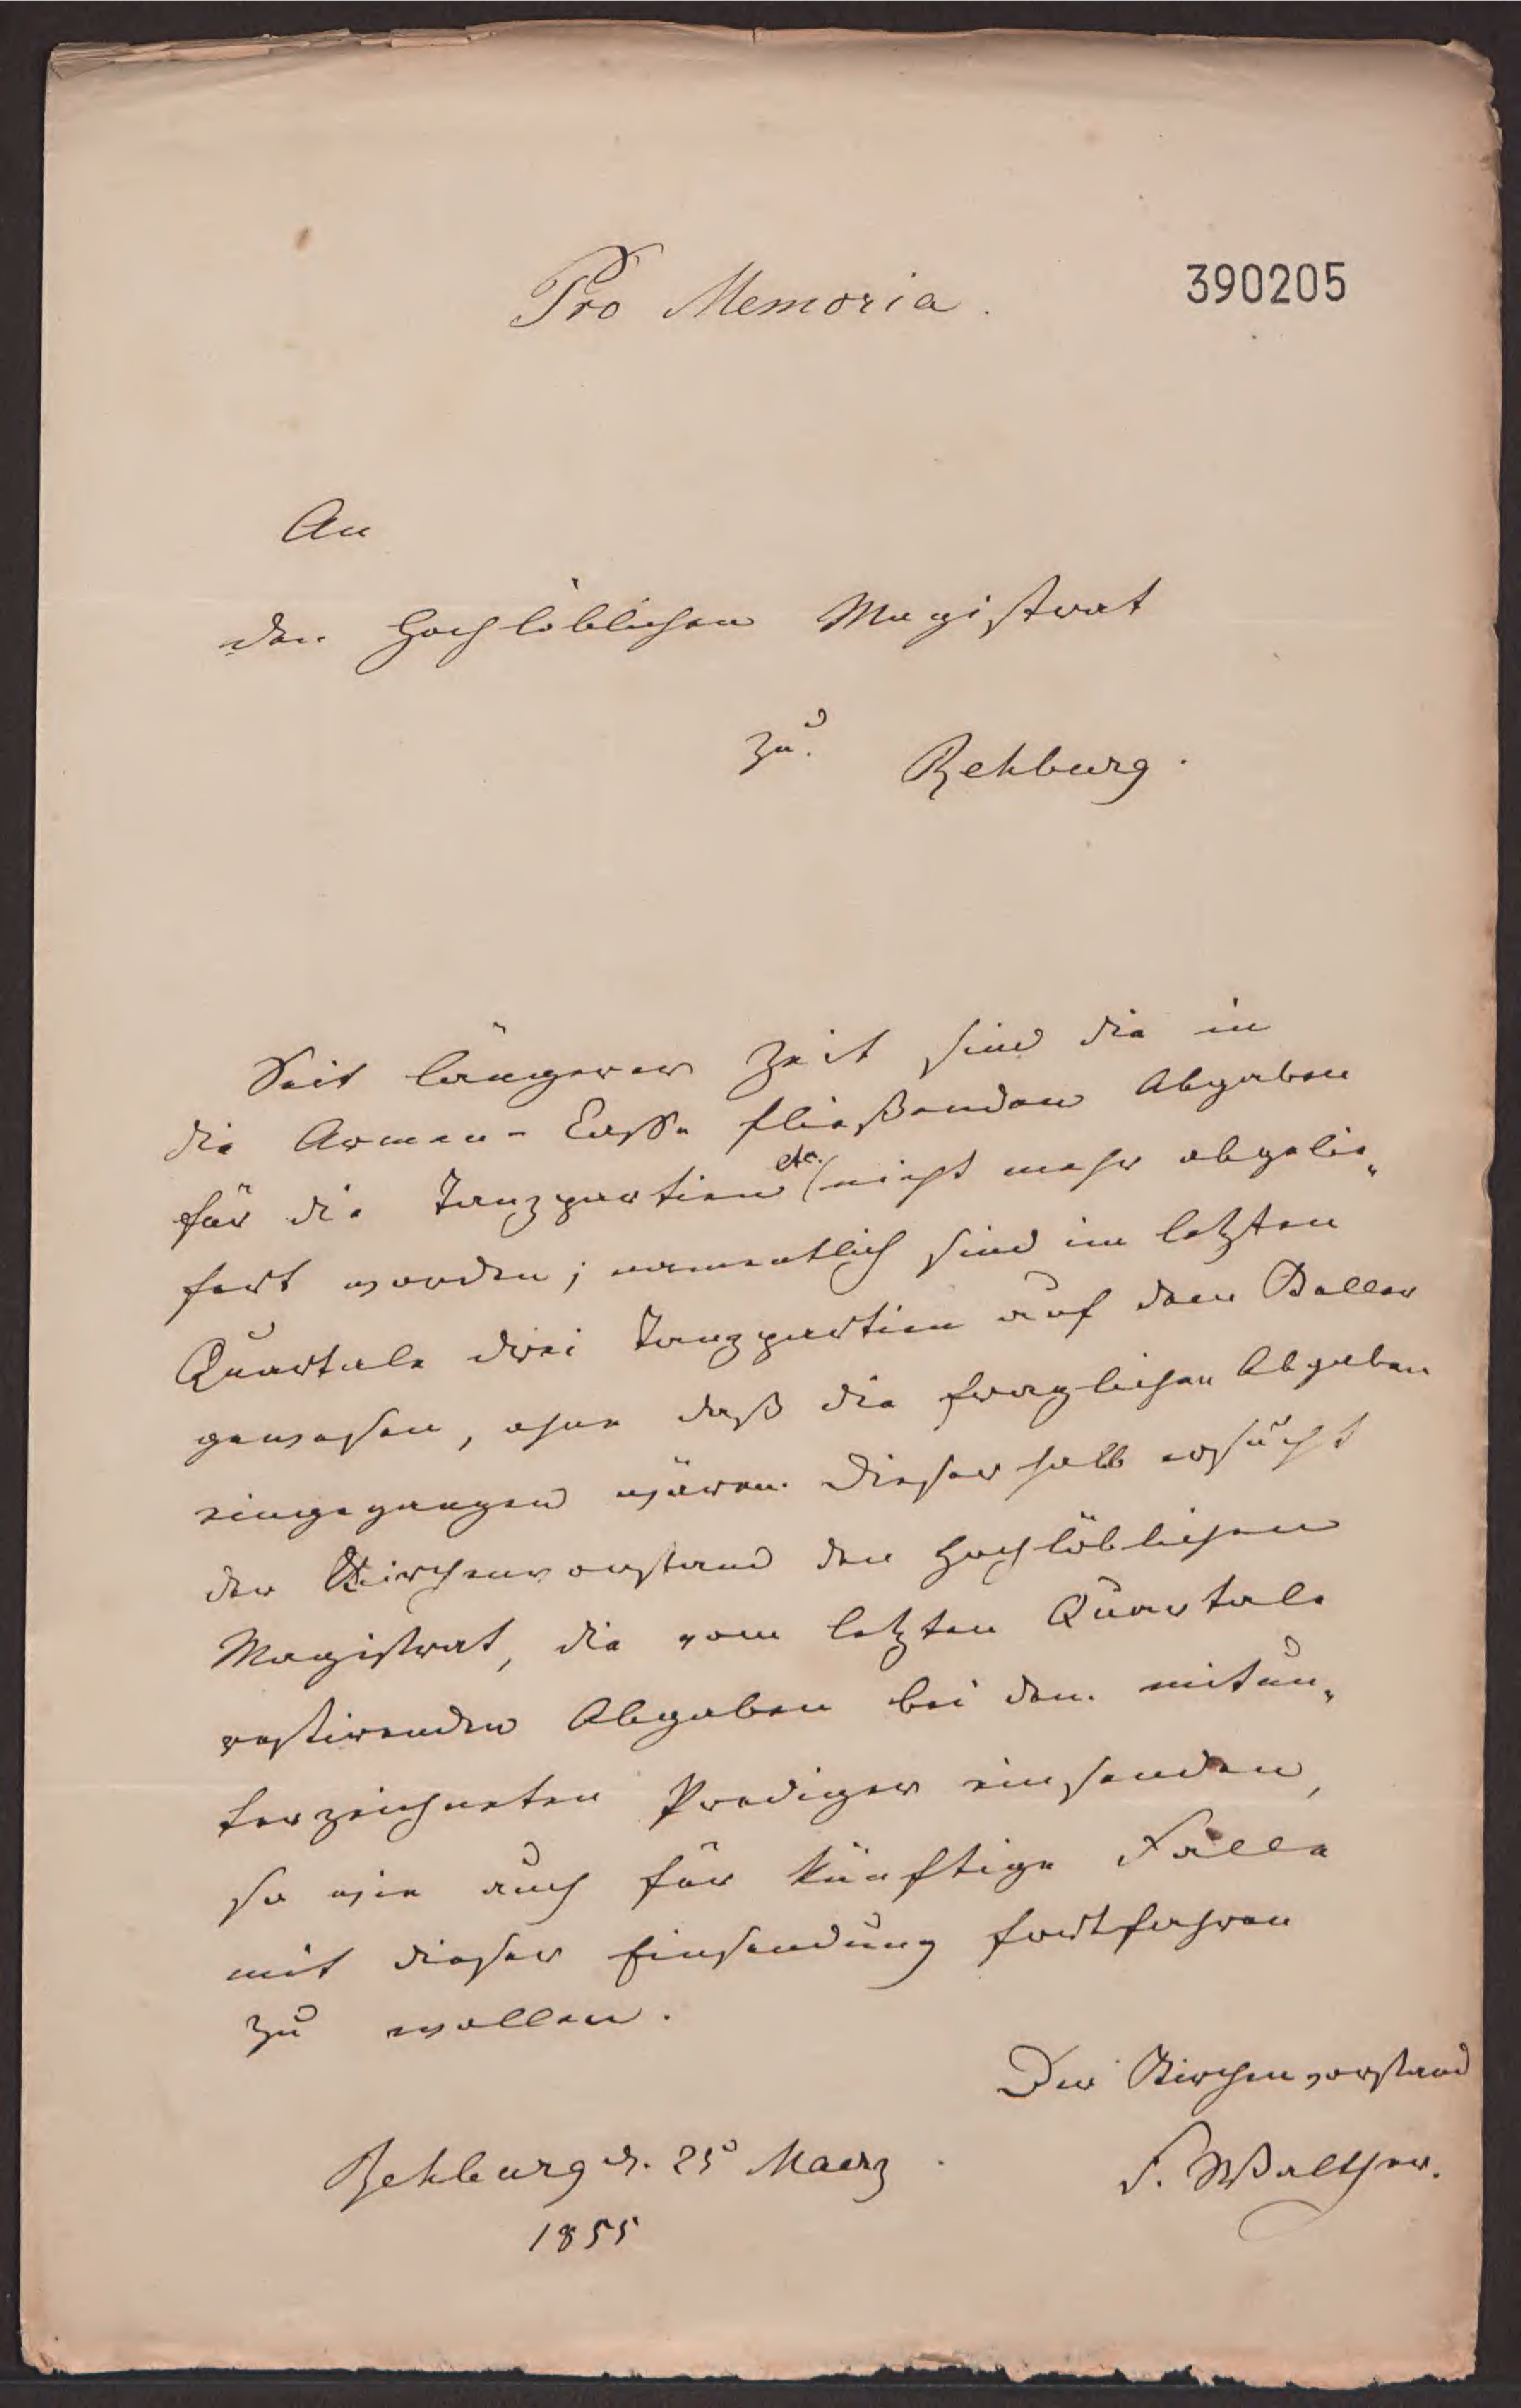 Pro Memoria.
390205
An
den Hochlöblichen Magistrat
zu Rehburg.
Seit längerer Zeit sind die in
die Armen-Casse fließenden Abgaben
für die Tanzpartien etc. nicht mehr abgelie„
fert worden; namentlich sind im letzten
Quartale drei Tanzpartien auf dem
gewesen, ohne daß die fraglichen Abgaben
eingegangen wären. Dieserhalb ersucht
der Kirchenvorstand den Hochlöblichen
Magistrat, die vom letzten Quartale
restirenden Abgaben bei dem mitun„
terzeichneten Prediger einsenden,
so wie auch für künftige Fälle
mit dieser Einsendung fortfahren
zu wollen.
Der Kirchenvorstand
Rehburg d. 25 Maerz
F. Walther.
1855